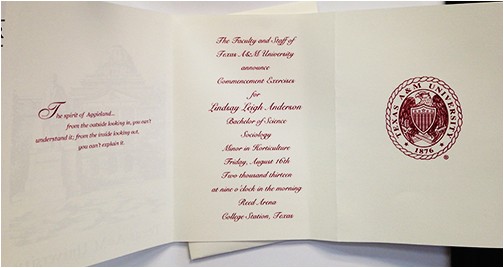 The spirit of Aggieland...
from the outside looking in, you can't
understand it; from the inside looking out,
you can't explain it.
The Faculty and Staff of
Texas A&M University
announce
Commencement Exercises
for
Lindsay Leigh Anderson
Bachelor of Science
Sociology
Minor in Horticulture
Friday, August 16th
Two thousand thirteen
at nine o'clock in the morning
Reed Arena
College Station, Texas
TEXAS A&M UNIVERSITY
1876
®